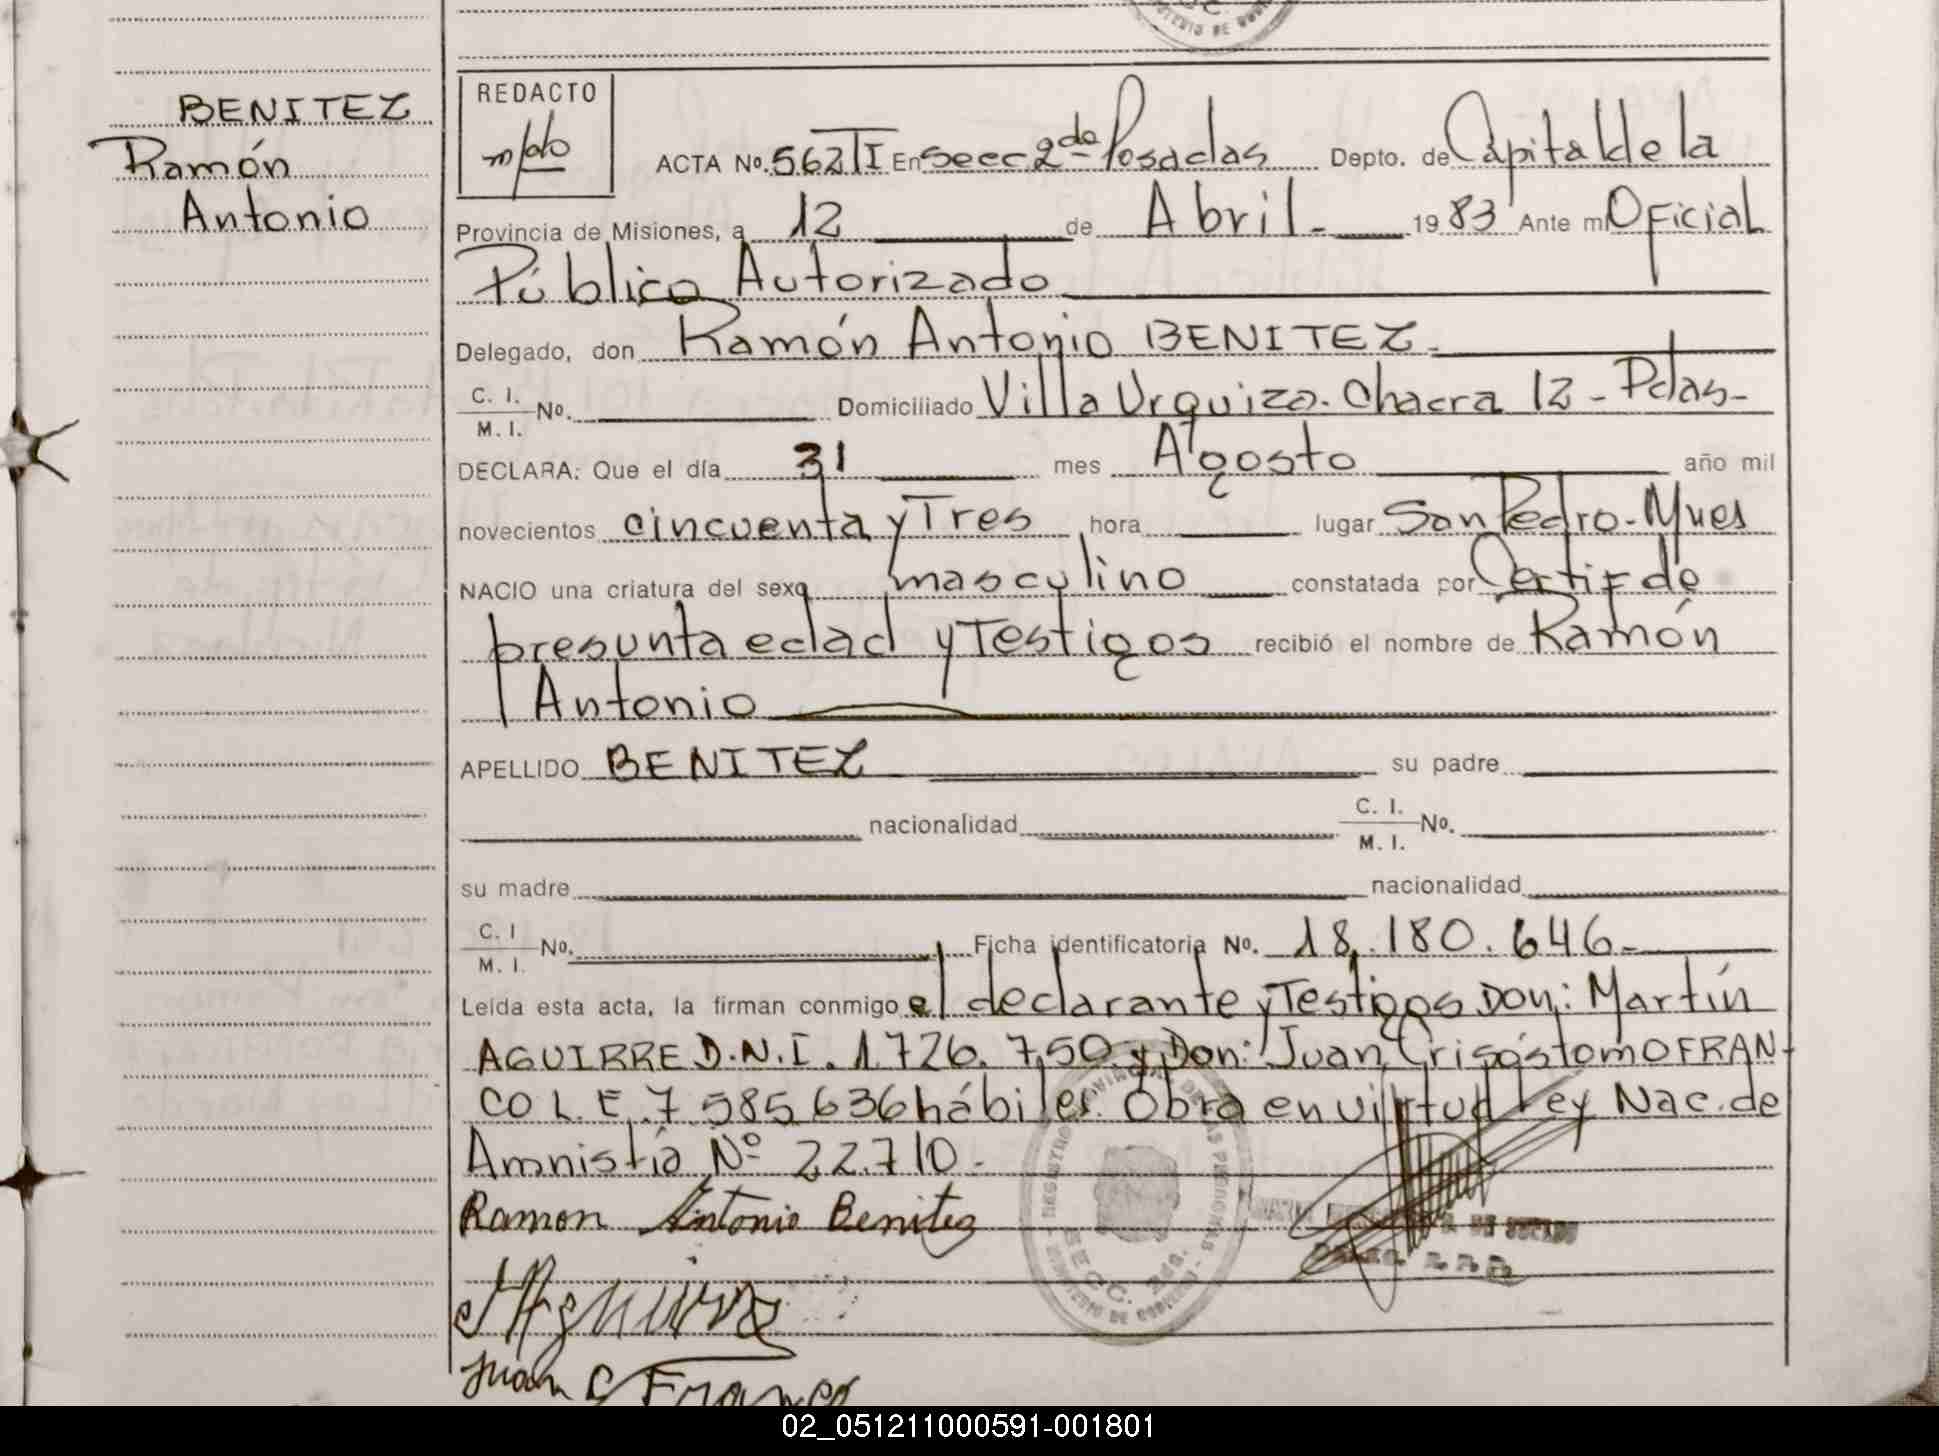 BENITEZ
Ramón
Antonio
REDACTO
ACTA No. 562 T I En Secc 2da Posadas Depto. de Capital de la
Provincia de Misiones, a 12 de Abril. 1983 Ante mí Oficial
Público Autorizado
Delegado, don Ramón Antonio BENITEZ
C. I.
M. I. No. Domiciliado Villa Urquiza. Chacra 12 - Pdas-
DECLARA: Que el día 31 mes Agosto año mil
novecientos cincuenta y Tres hora lugar San Pedro - Mnes
NACIO una criatura del sexo masculino constatada por Certif de
presunta edad y Testigos recibió el nombre de Ramón
Antonio
APELLIDO BENITEZ su padre
nacionalidad C. I.
M. I. No.
su madre nacionalidad
C. I
M. I. No. Ficha identificatoria No. 18.180.646-
Leída esta acta, la firman conmigo el declarante y Testigos Don: Martín
AGUIRRE D.N.I. 1.726.750 y Don: Juan Crisóstomo FRAN-
CO L.E. 7.585.636 hábiles. Obra en virtud Ley Nac. de
Amnistía Nº 22.710.-
Ramon Antonio Benitez
MAguirre
Juan C Franco
REGISTRO PROVINCIAL DE LAS PERSONAS
SECC. 2da.
MINISTERIO DE GOBIERNO
02_051211000591-001801